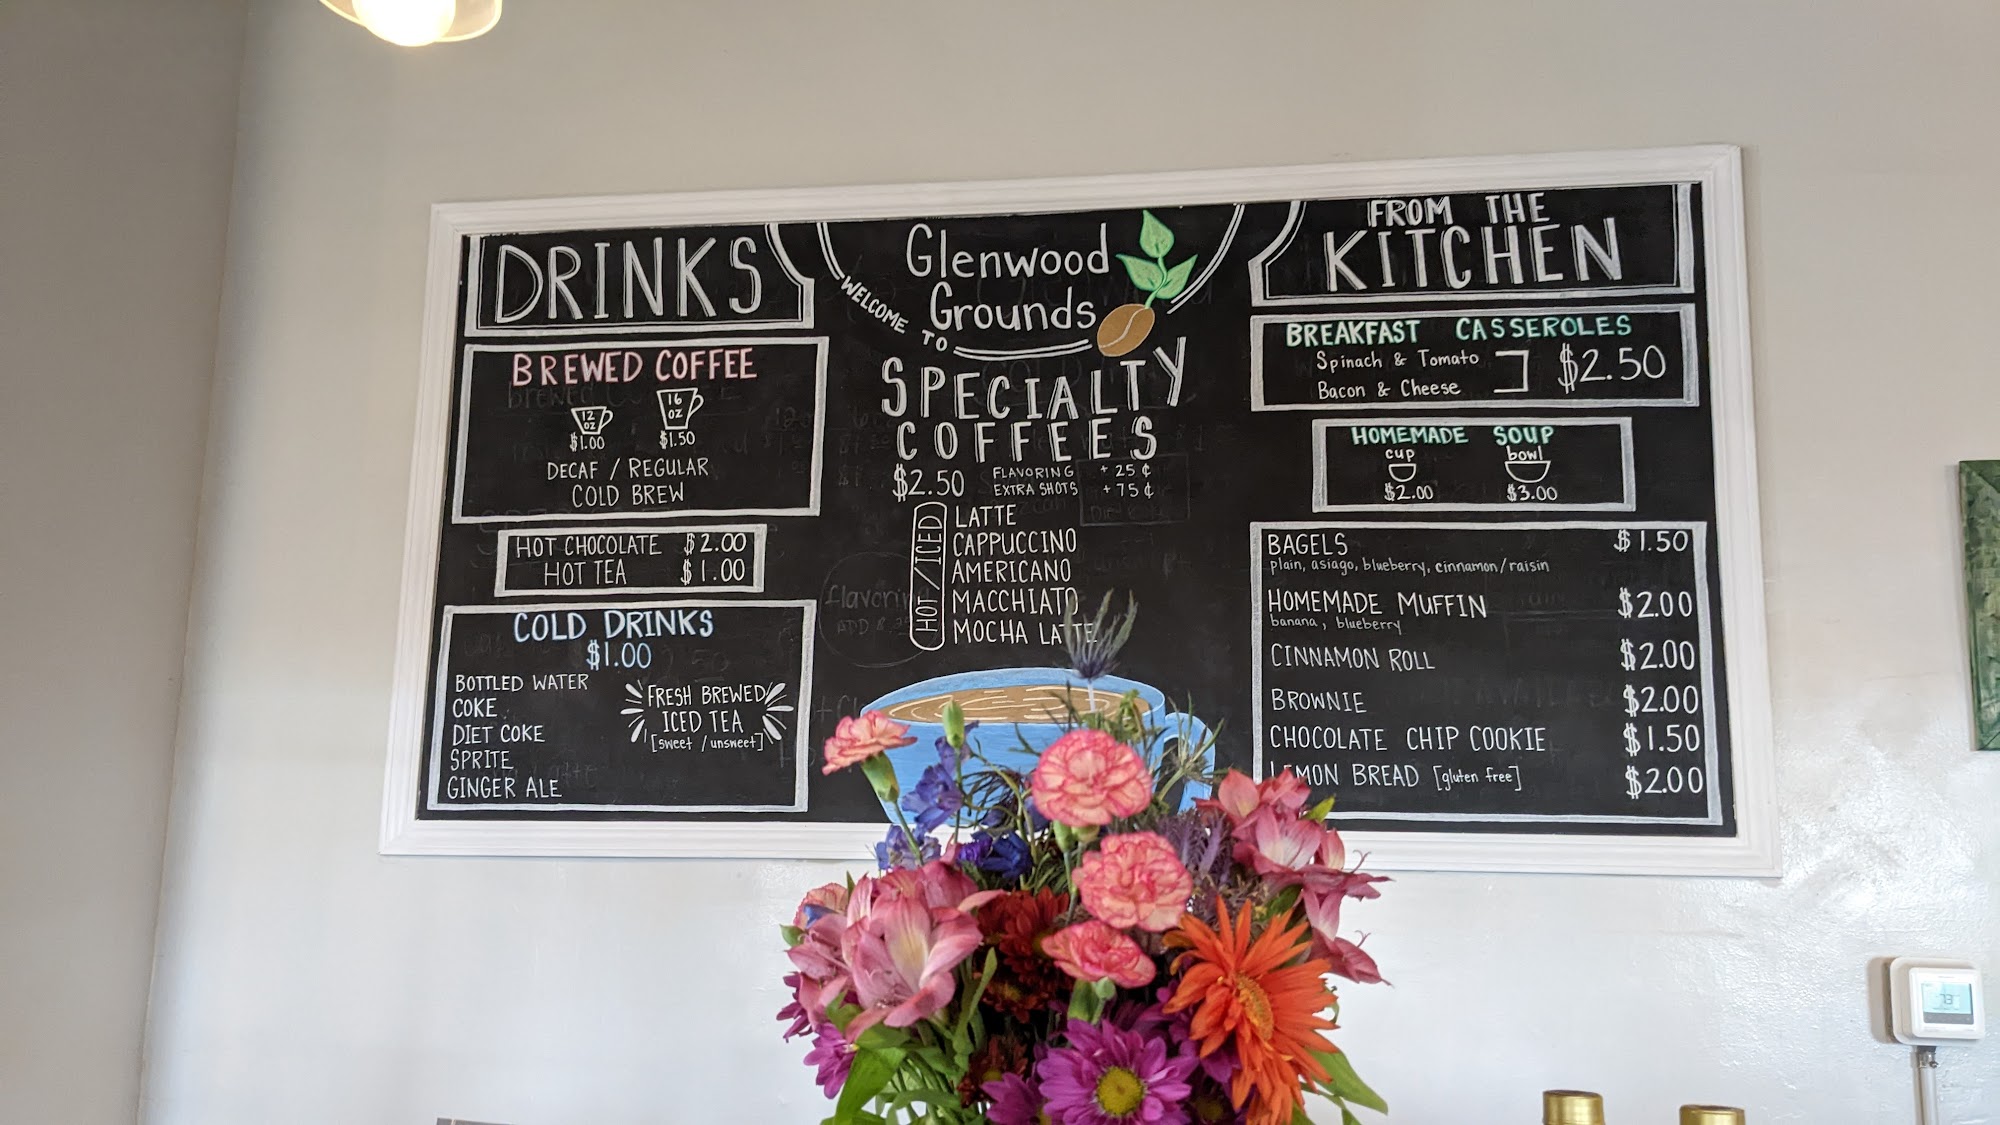 DRINKS
BREWED COFFEE
12 OZ
$1.00
16 OZ
$1.50
DECAF / REGULAR
COLD BREW
HOT CHOCOLATE $2.00
HOT TEA $1.00
COLD DRINKS
$1.00
BOTTLED WATER
COKE
DIET COKE
SPRITE
GINGER ALE
FRESH BREWED
ICED TEA
[sweet / unsweet]
WELCOME TO
Glenwood
Grounds
SPECIALTY
COFFEES
$2.50
FLAVORING + 25¢
EXTRA SHOTS + 75¢
HOT / ICED
LATTE
CAPPUCCINO
AMERICANO
MACCHIATO
MOCHA LATTE
FROM THE
KITCHEN
BREAKFAST CASSEROLES
Spinach & Tomato
Bacon & Cheese
$2.50
HOMEMADE SOUP
cup
$2.00
bowl
$3.00
BAGELS $1.50
plain, asiago, blueberry, cinnamon/raisin
HOMEMADE MUFFIN $2.00
banana, blueberry
CINNAMON ROLL $2.00
BROWNIE $2.00
CHOCOLATE CHIP COOKIE $1.50
LEMON BREAD [gluten free] $2.00
73